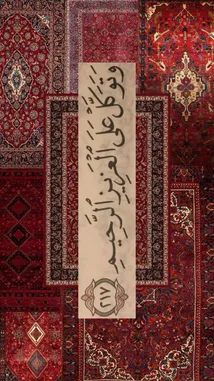 وَتَوَكَّلْ عَلَى الْعَزِيزِ الرَّحِيمِ ﴿٢١٧﴾